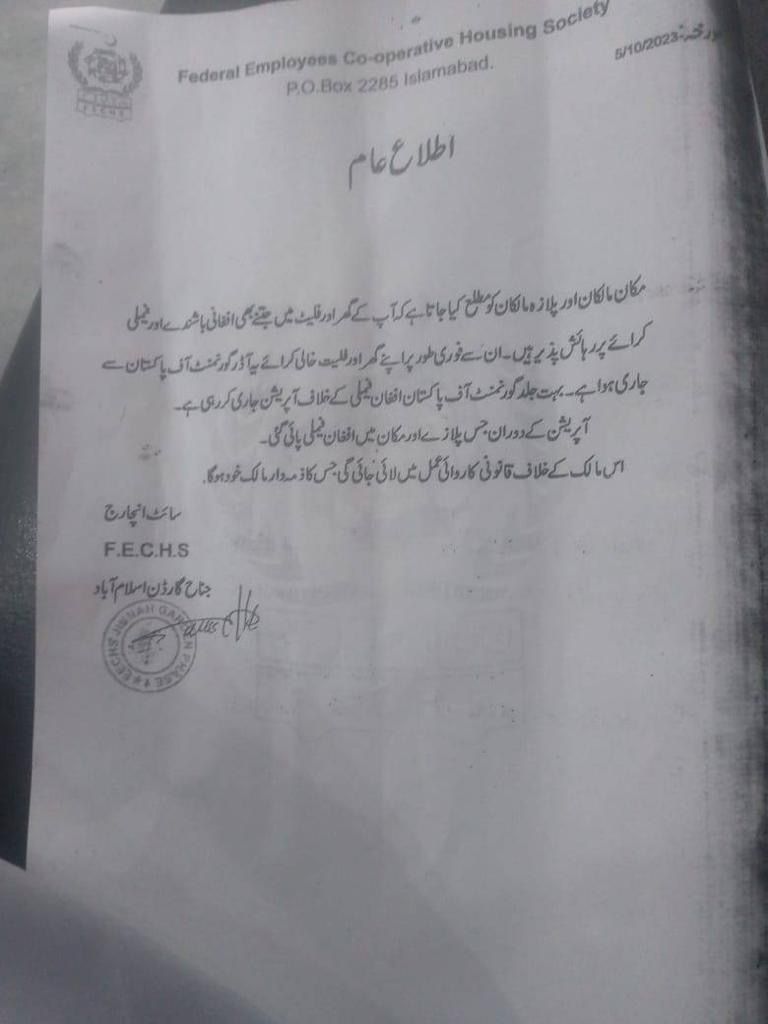 Federal Employees Co-operative Housing Society
P.O.Box 2285 Islamabad.
مورخہ:-5/10/2023
F E C H S
اطلاع عام
مکان مالکان اور پلازہ مالکان کو مطلع کیا جاتا ہے کہ آپ کے گھر اور فلیٹ میں جتنے بھی افغانی باشندے اور فیملی
کرائے پر رہائش پذیر ہیں۔ ان سے فوری طور پر اپنے گھر اور فلیٹ خالی کرائے یہ آڈر گورنمنٹ آف پاکستان سے
جاری ہوا ہے۔ بہت جلد گورنمنٹ آف پاکستان افغان فیملی کے خلاف آپریشن جاری کر رہی ہے۔
آپریشن کے دوران جس پلازے اور مکان میں افغان فیملی پائی گئی۔
اس مالک کے خلاف قانونی کاروائی عمل میں لائی جائی گی جس کا ذمہ دار مالک خود ہوگا.
سائٹ انچارج
F.E.C.H.S
جناح گارڈن اسلام آباد
FECHS JINNAH GARDEN PHASE